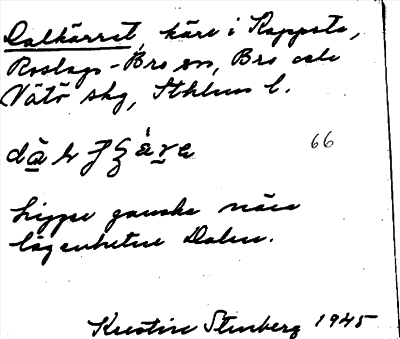 Dalkärret, kärr i Rappsta,
Roslags-Bro sn, Bro och
Vätö skg, Sthlms l.
66
Ligger ganska nära
lägenheten Dalen.
Kerstin Stenberg 1945